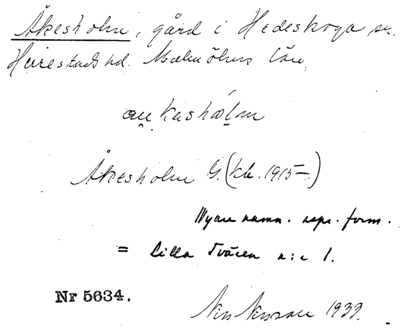 Åkesholm, gård i Hedeskoga sn.
Herrestads hd. Malmöhus län.
Åkesholm G. (kb. 1915–)
Nyare namn. repr. form.
= Lilla Tvären n:r 1.
Nr 5634.
Nils Nilsson 1933.